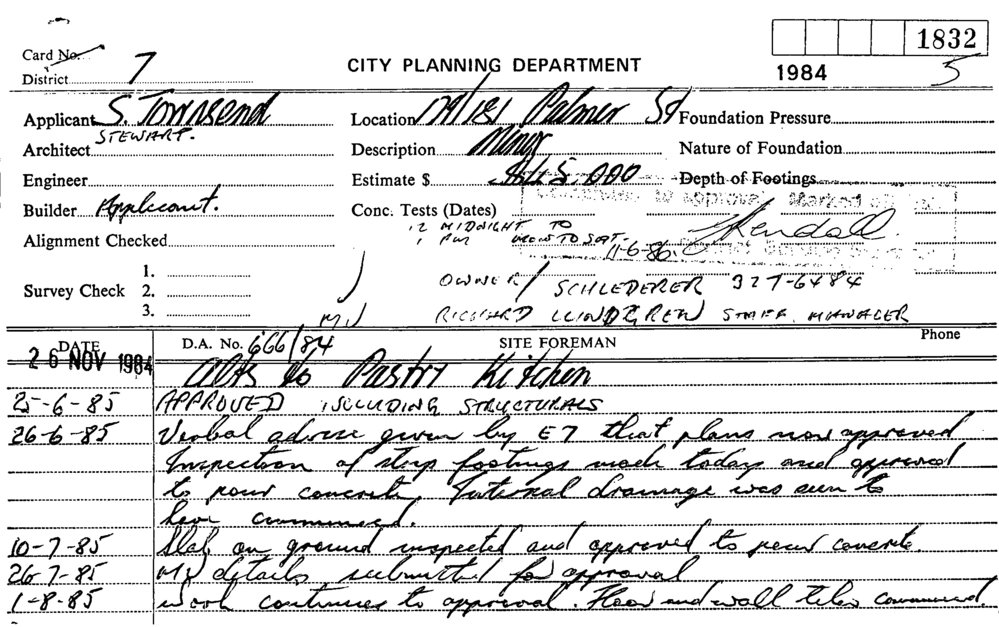 Card No.
1832
District 7
CITY PLANNING DEPARTMENT
1984
5
Applicant S. Townsend
STEWART.
Location 179/181 Palmer St
Foundation Pressure
Architect
Description Minor
Nature of Foundation
Engineer
Estimate $ 5.000
Depth of Footings
Builder Applicant.
Conc. Tests (Dates)
to approval Marked off
Alignment Checked
12 MIDNIGHT TO
1 PM MON TO SAT.
11-6-86
Kendall
Survey Check 1.
2.
3.
OWNER / SCHLEDERER 327-6484
MV
RICHARD LUNDGREN STAFF MANAGER
DATE
D.A. No. 666/84
SITE FOREMAN
Phone
26 NOV 1984
Alts to Pastry Kitchen
25-6-85 APPROVED INCLUDING STRUCTURALS
26-6-85 Verbal advise given by E7 that plans now approved
Inspection of step footings made today and approved
to pour concrete. Internal drainage was seen to
have commenced.
10-7-85 Slab on ground inspected and approved to pour concrete.
26-7-85 MV details submitted for approval
1-8-85 Work continues to approval. Floor and wall tiles commenced.